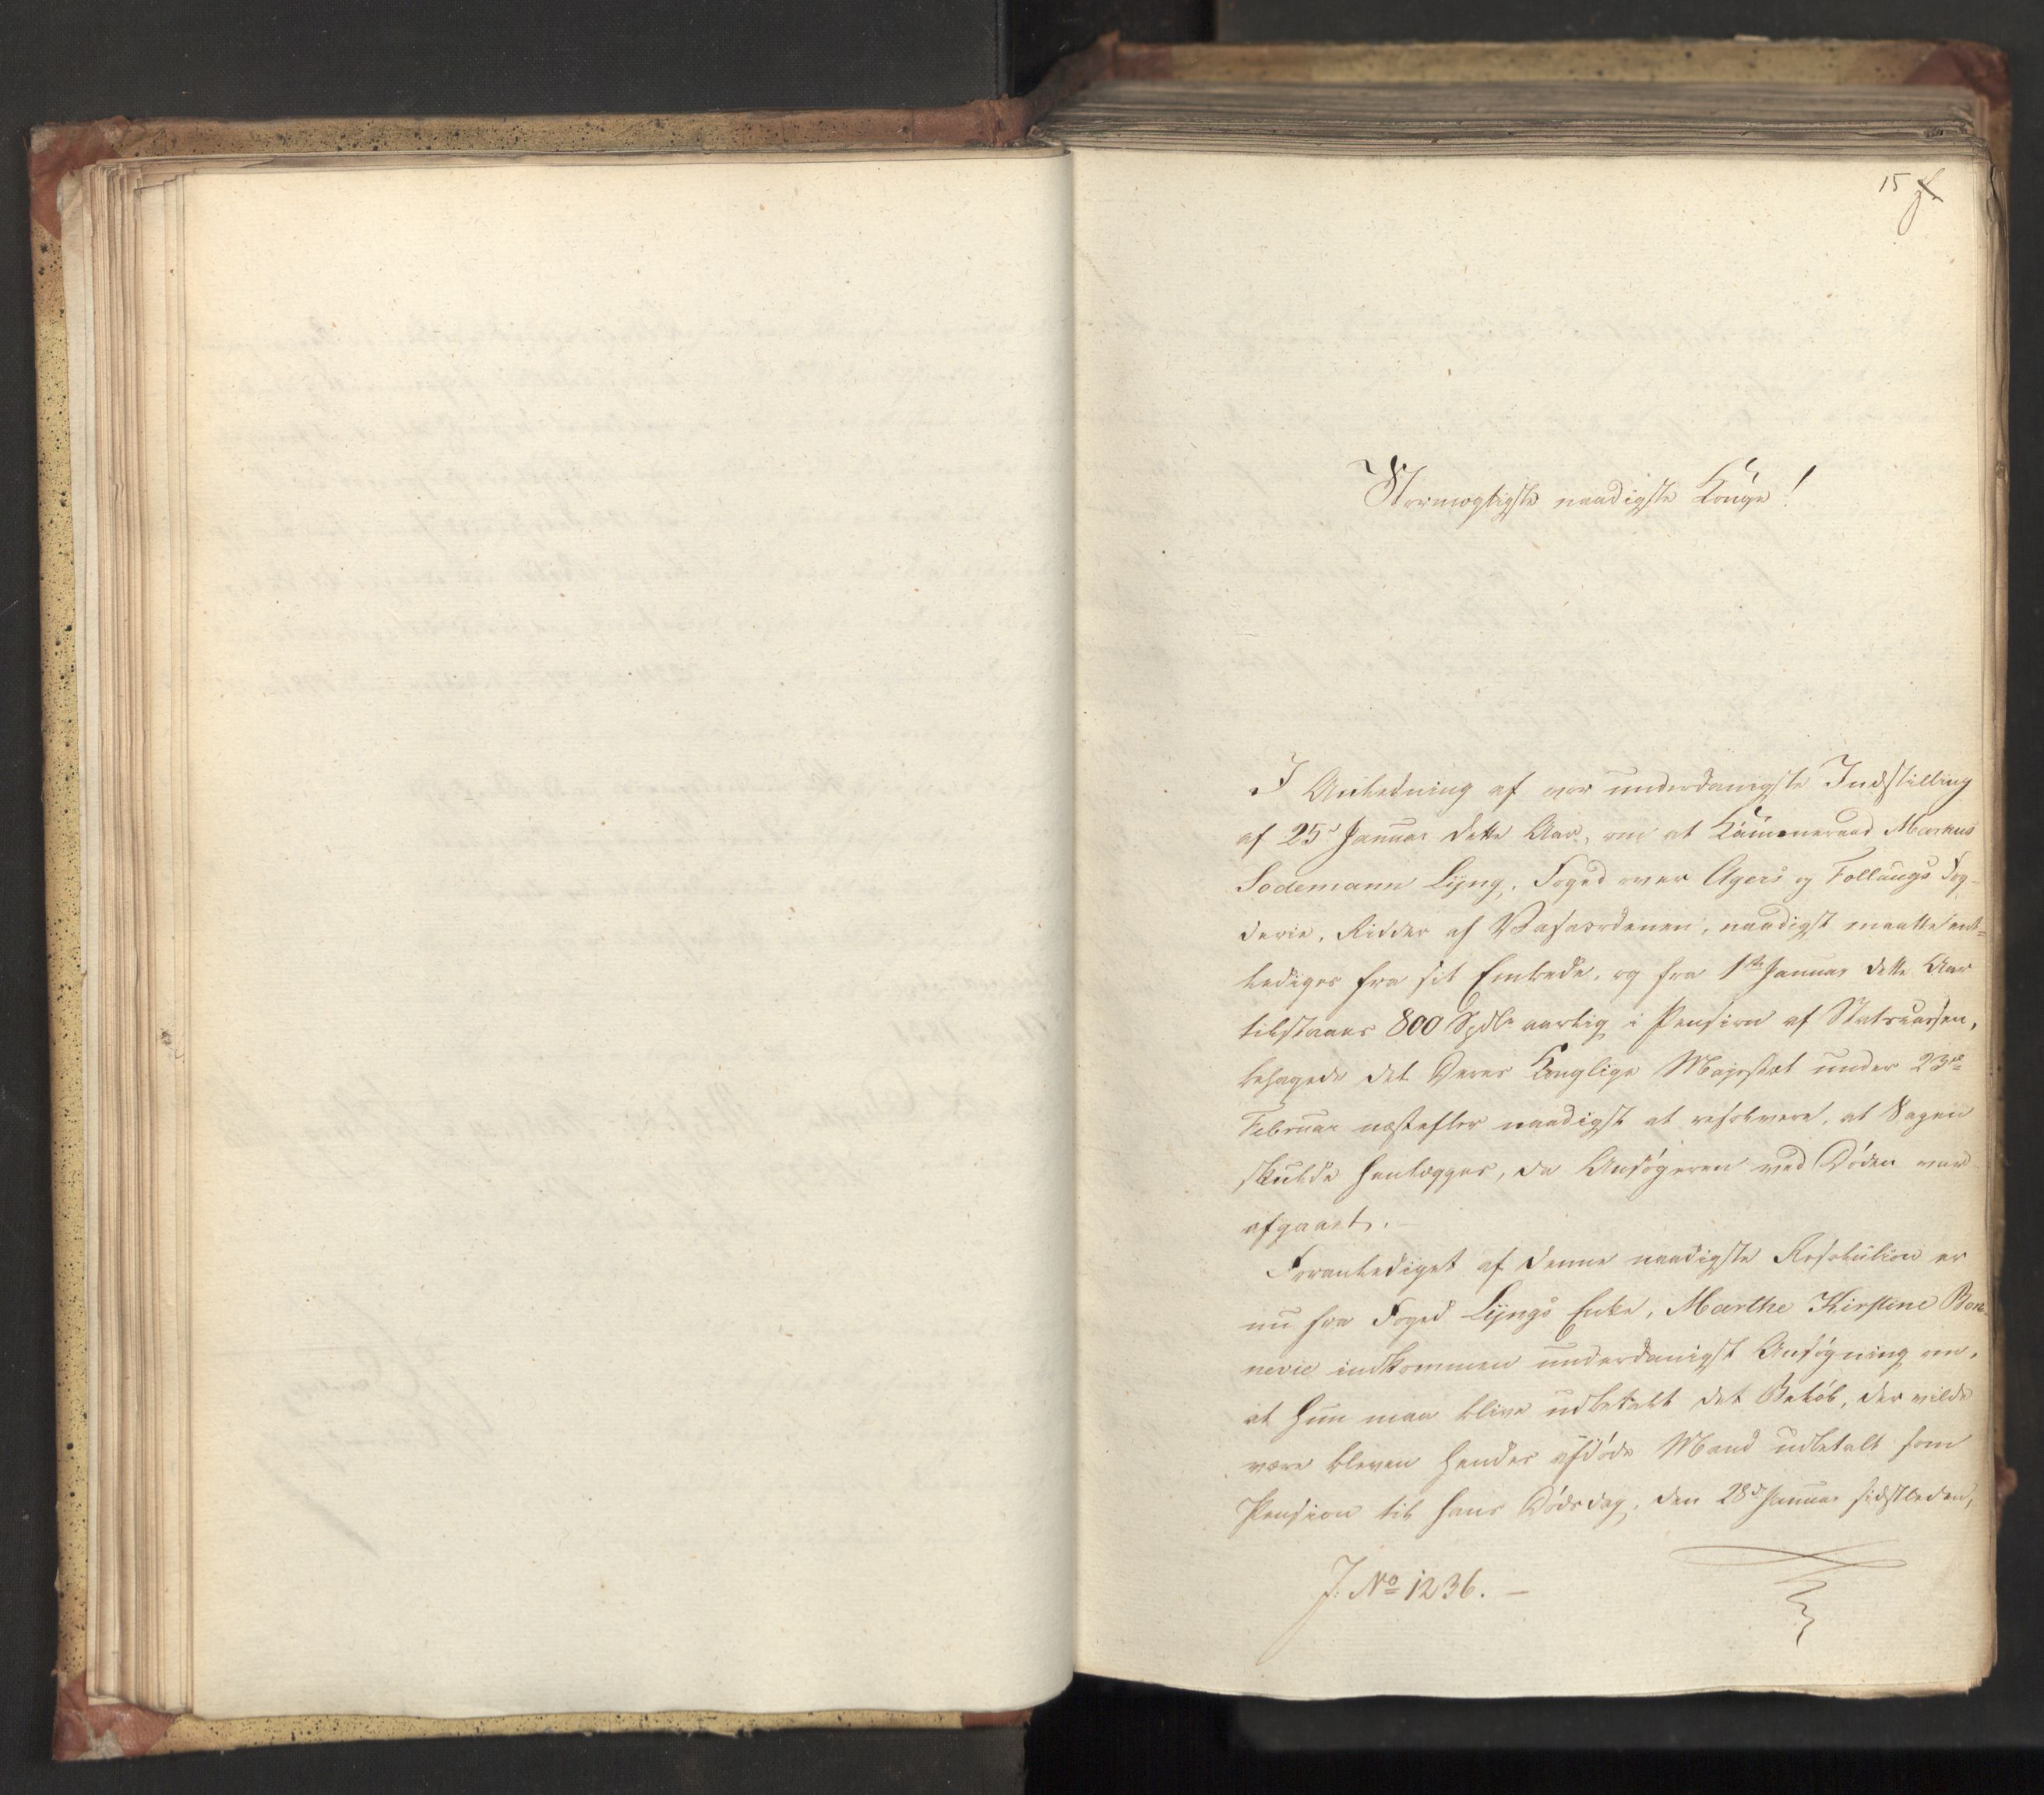 15
Stormægtigste naadigste Konge!
I Anledning af vor underdanigste Indstilling
af 25de Januar dette Aar, om at Kammerraad Markus
Sodemann Lyng, Foged over Agers og Follougs Fog-
derie, Ridder af Vasaordenen, naadigst maatte ent-
lediges fra sit Embede, og fra 1ste Januar dette Aar
tilstaaes 800 Spdlr aarlig i Pension af Statscassen,
behagede det Deres Konglige Majestæt under 23de
Februar næstefter naadigst at resolvere, at Sagen
skulde henlægges, da Ansøgeren ved Døden var
afgaaet.
Foranlediget af denne naadigste Resolution er
nu fra Foged Lyngs Enke, Marthe Kirstine Bon-
nevie indkommen underdanigst Ansøgning om,
at hun maa blive udbetalt det Beløb, der vilde
være bleven hendes afdøde Mand udbetalt som
Pension til hans Dødsdag, den 28de Januar sidstleden,
J. No 1236. —